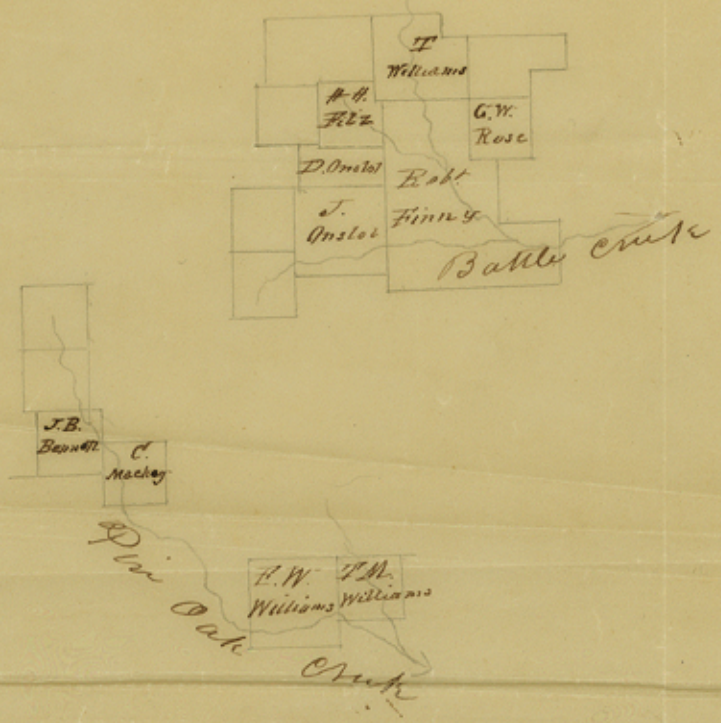 T
Williams
H. H.
Fitz
G. W.
Rose
D. Onslot
Robt.
Finny
J.
Onslot
Battle Creek
J. B.
Bennett
C.
Mackey
Pin Oak Creek
E. W.
Williams
T M.
Williams